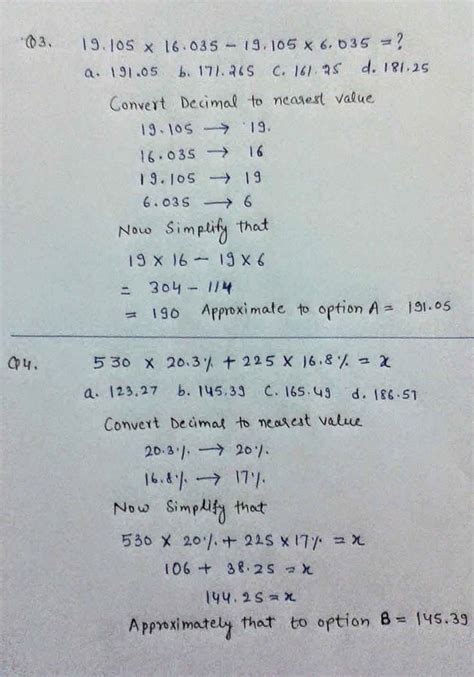 Q3. 19.105 × 16.035 – 19.105 × 6.035 = ?
a. 191.05 b. 171.265 c. 161.25 d. 181.25
Convert Decimal to nearest value
19.105 → 19.
16.035 → 16
19.105 → 19
6.035 → 6
Now Simplify that
19 × 16 – 19 × 6
= 304 – 114
= 190 Approximate to option A = 191.05
Q4. 530 × 20.3% + 225 × 16.8% = x
a. 123.27 b. 145.39 c. 165.49 d. 186.51
Convert Decimal to nearest value
20.3% → 20%.
16.8% → 17%.
Now Simplify that
530 × 20% + 225 × 17% = x
106 + 38.25 = x
144.25 = x
Approximately that to option B = 145.39